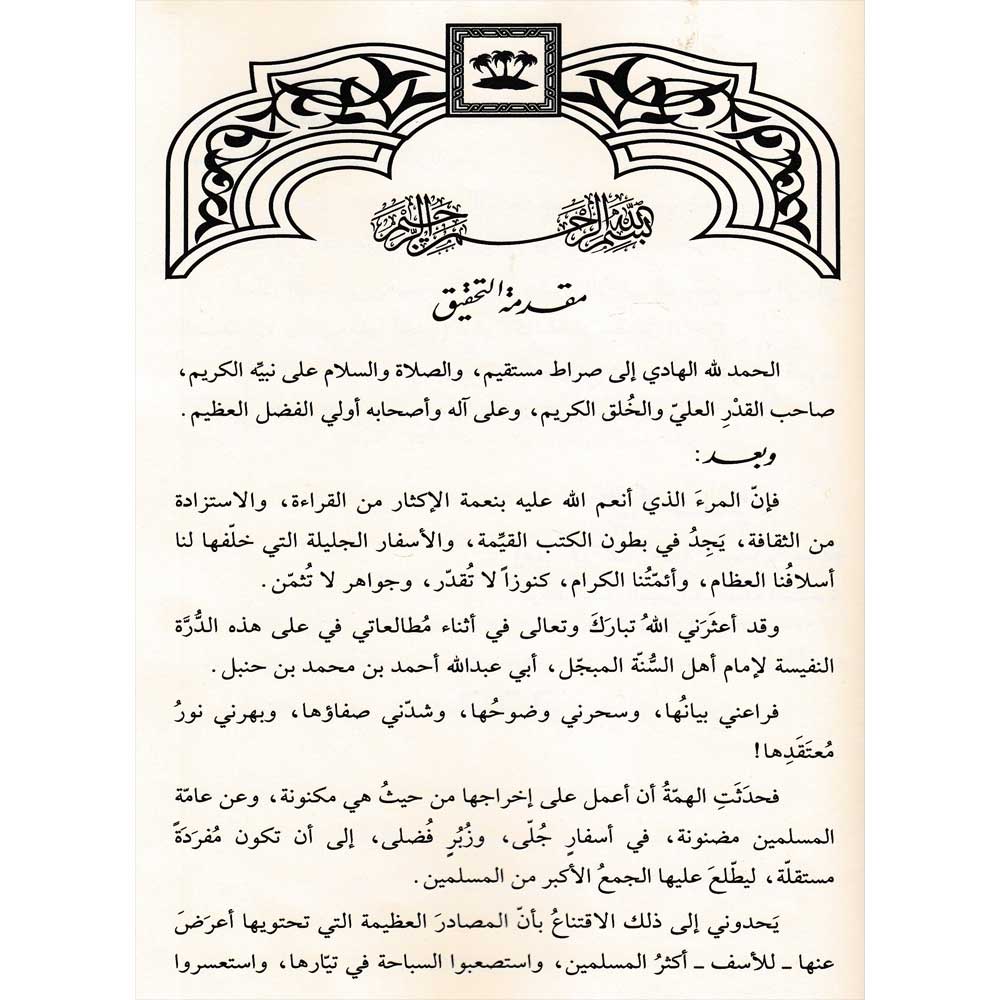 بسم الله الرحمن الرحيم
مقدمة التحقيق
الحمد لله الهادي إلى صراط مستقيم، والصلاة والسلام على نبيِّه الكريم،
صاحب القدْرِ العليّ والخُلق الكريم، وعلى آله وأصحابه أولي الفضل العظيم.
وبعد:
فإنّ المرءَ الذي أنعم الله عليه بنعمة الإكثار من القراءة، والاستزادة
من الثقافة، يَجِدُ في بطون الكتب القيِّمة، والأسفار الجليلة التي خلّفها لنا
أسلافُنا العظام، وأئمّتُنا الكرام، كنوزاً لا تُقدّر، وجواهر لا تُثمّن.
وقد أعثَرَني اللهُ تبارَكَ وتعالى في أثناء مُطالعاتي في على هذه الدُّرَّة
النفيسة لإمام أهل السُّنّة المبجّل، أبي عبدالله أحمد بن محمد بن حنبل.
فراعني بيانُها، وسحرني وضوحُها، وشدّني صفاؤها، وبهرني نورُ
مُعتَقَدِها!
فحدَثَتِ الهمّةُ أن أعمل على إخراجها من حيثُ هي مكنونة، وعن عامّة
المسلمين مضنونة، في أسفارٍ جُلّى، وزُبُرٍ فُضلى، إلى أن تكون مُفرَدَةً
مستقلّة، ليطّلعَ عليها الجمعُ الأكبر من المسلمين.
يَحدوني إلى ذلك الاقتناعُ بأنّ المصادرَ العظيمة التي تحتويها أعرَضَ
عنها ـ للأسف ـ أكثرُ المسلمين، واستصعبوا السباحة في تيّارها، واستعسروا